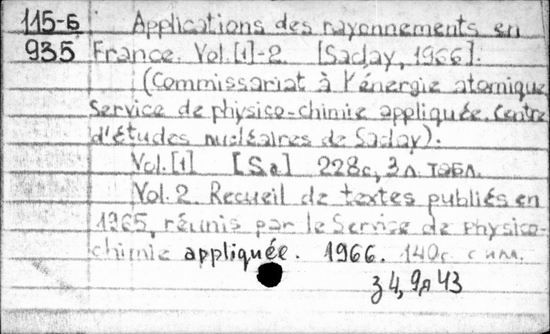 115-Б Applications des rayonnements en
935 France. Vol. [1]-2. [Saclay, 1966].
(Commissariat à l'énergie atomique.
Service de physico-chimie appliquée. Centre
d'études nucléaires de Saclay).
Vol. [1] 228с, 3 л. табл.
Vol. 2. Recueil de textes publiés en
1965, réunis par le Service de physico-
chimie appliquée. 1966. 140с. с илл.
34, 9я43